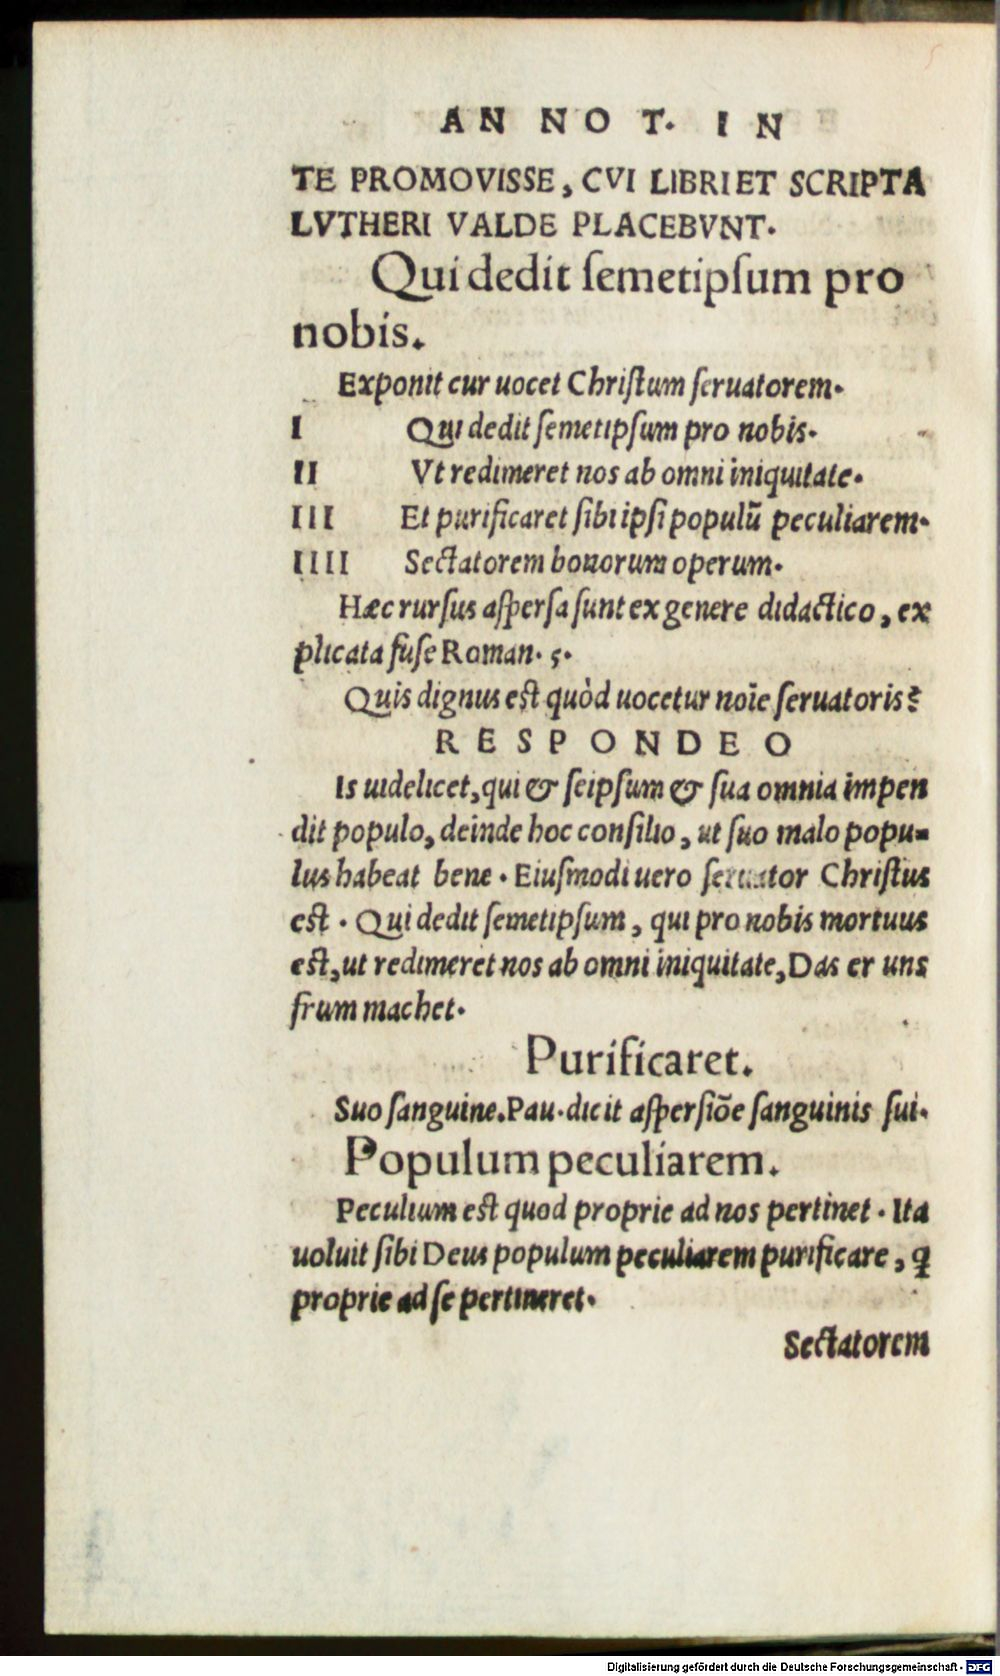 ANNOT. IN
TE PROMOVISSE, CVI LIBRI ET SCRIPTA
LVTHERI VALDE PLACEBVNT.
Qui dedit ſemetipſum pro
nobis.
Exponit cur uocet Chriſtum ſeruatorem.
I Qui dedit ſemetipſum pro nobis.
II Vt redimeret nos ab omni iniquitate.
III Et purificaret ſibi ipſi populũ peculiarem.
IIII Sectatorem bonorum operum.
Hæc rurſus aſperſa ſunt ex genere didactico, ex
plicata fuſe Roman. 5.
Quis dignus est quòd uocetur noĩe ſeruatoris?
RESPONDEO
Is uidelicet, qui & ſeipſum & ſua omnia impen
dit populo, deinde hoc conſilio, ut ſuo malo popu-
lus habeat bene. Eiuſmodi uero ſeruator Chriſtus
eſt. Qui dedit ſemetipſum, qui pro nobis mortuus
eſt, ut redimeret nos ab omni iniquitate, Das er uns
frum machet.
Purificaret.
Suo ſanguine. Pau. dicit aſperſiõe ſanguinis ſui.
Populum peculiarem.
Peculium eſt quod proprie ad nos pertinet. Ita
uoluit ſibi Deus populum peculiarem purificare, ꝗ
proprie ad ſe pertineret.
Sectatorem
Digitalisierung gefördert durch die Deutsche Forschungsgemeinschaft - DFG